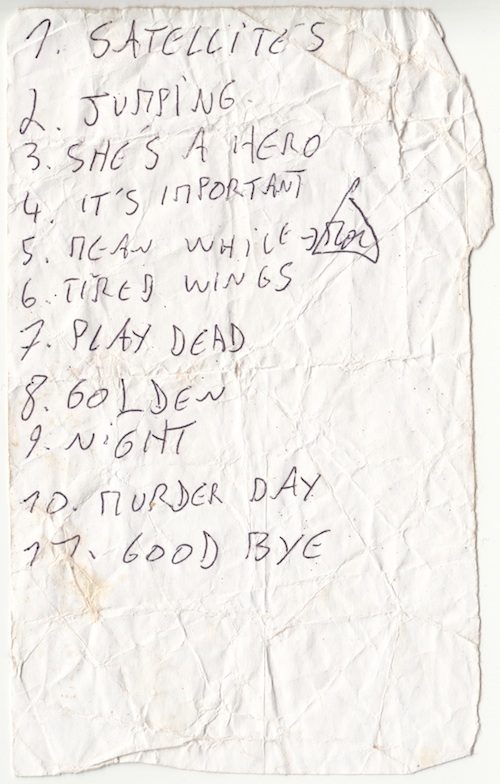 1. SATELLITES
2. JUMPING.
3. SHE'S A HERO
4. IT'S IMPORTANT
5. MEAN WHILE →
6. TIRED WINGS
7. PLAY DEAD
8. GOLDEN
9. NIGHT
10. MURDER DAY
11. GOOD BYE